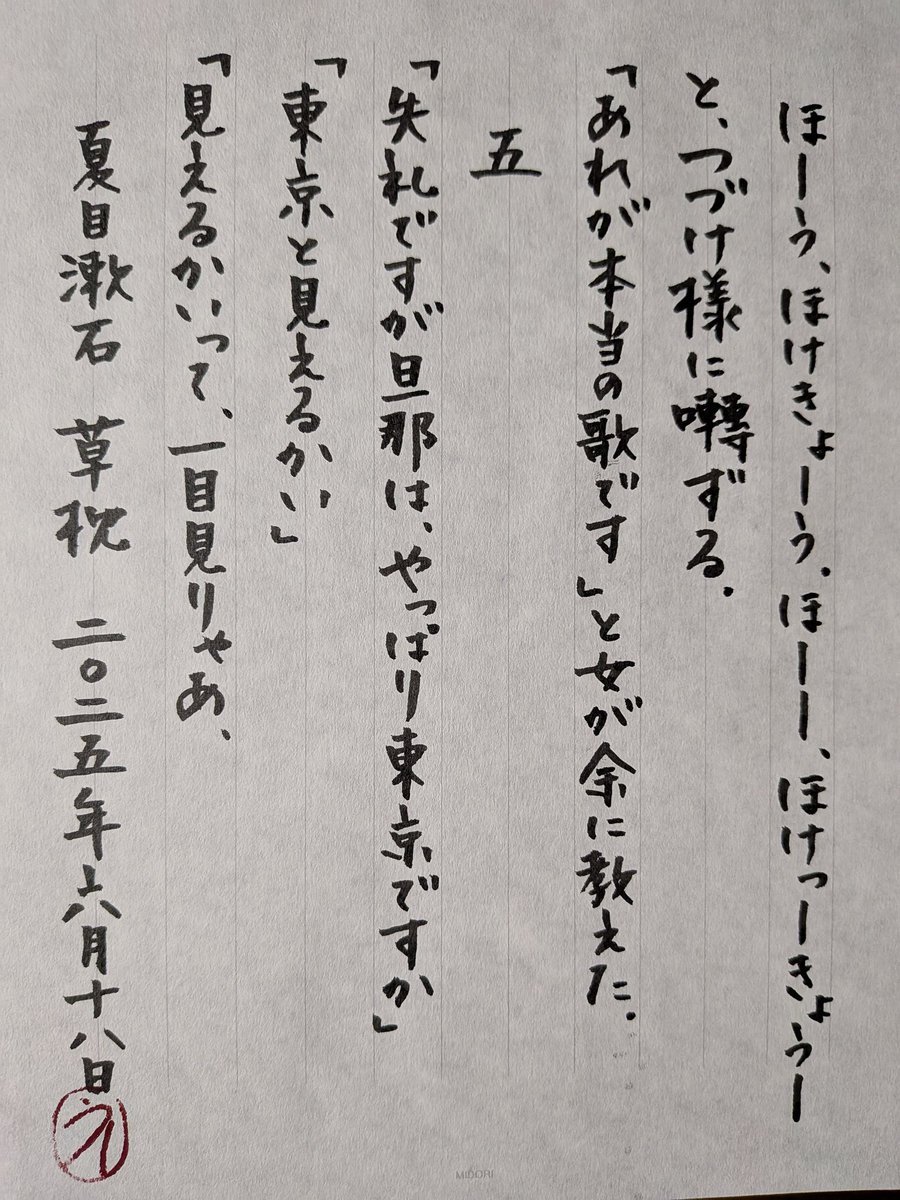 ほーう、ほけきょーう。ほーー、ほけっーきょうー
と、つづけ様に囀ずる.
「あれが本当の歌です」と女が余に教えた.
五
「失礼ですが旦那は、やっぱり東京ですか」
「東京と見えるかい」
「見えるかいって、一目見りゃあ、
夏目漱石 草枕 二〇二五年六月十八日
え
MIDORI